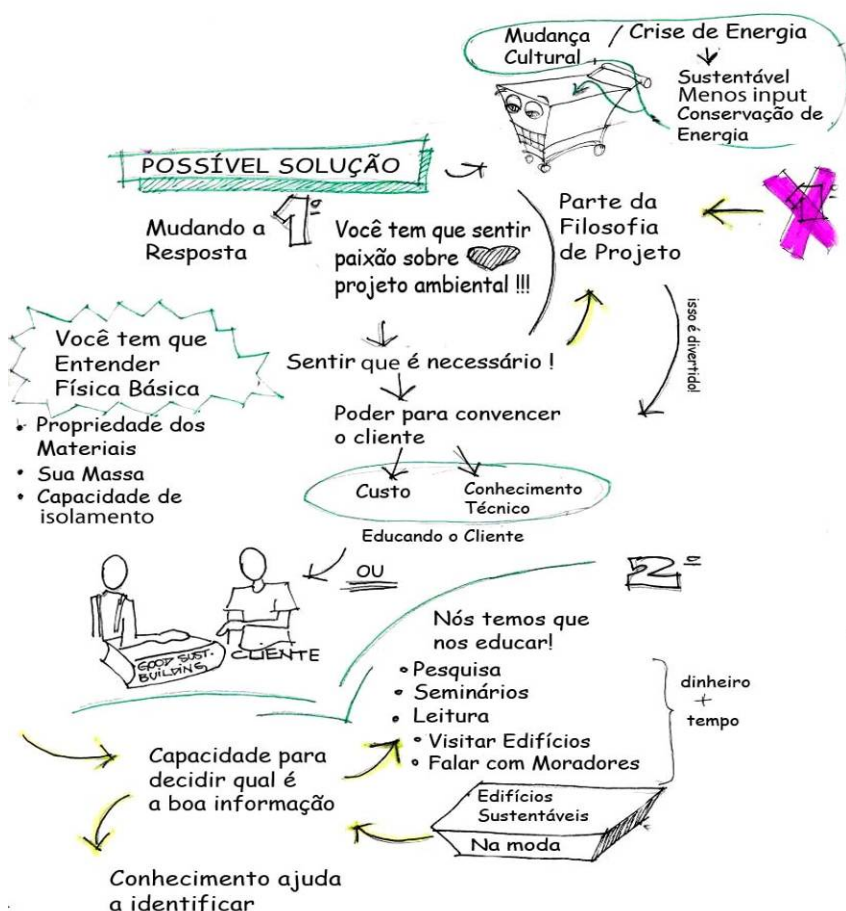 Mudança
Cultural
/ Crise de Energia
Sustentável
Menos input
Conservação de
Energia
POSSÍVEL SOLUÇÃO
1º
Mudando a
Resposta
Você tem que sentir
paixão sobre
projeto ambiental !!!
Parte da
Filosofia
de Projeto
1º
isso é divertido!
Você tem que
Entender
Física Básica
• Propriedade dos
Materiais
• Sua Massa
• Capacidade de
isolamento
Sentir que é necessário !
Poder para convencer
o cliente
Custo
Conhecimento
Técnico
Educando o Cliente
OU
GOOD SUST.
BUILDING
CLIENTE
2º
Nós temos que
nos educar!
• Pesquisa
• Seminários
• Leitura
• Visitar Edifícios
• Falar com Moradores
dinheiro
+
tempo
Capacidade para
decidir qual é
a boa informação
Edifícios
Sustentáveis
Na moda
Conhecimento ajuda
a identificar